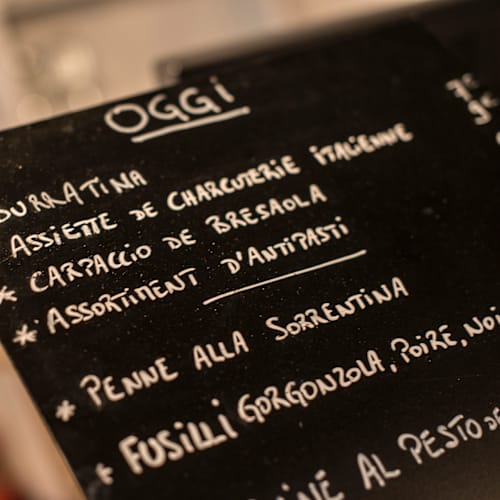 OGGI
BURRATINA 7€
ASSIETTE DE CHARCUTERIE ITALIENNE 9€
* CARPACCIO DE BRESAOLA
* ASSORTIMENT D'ANTIPASTI
* PENNE ALLA SORRENTINA
* FUSILLI GORGONZOLA, POIRE, NOI
AL PESTO DE